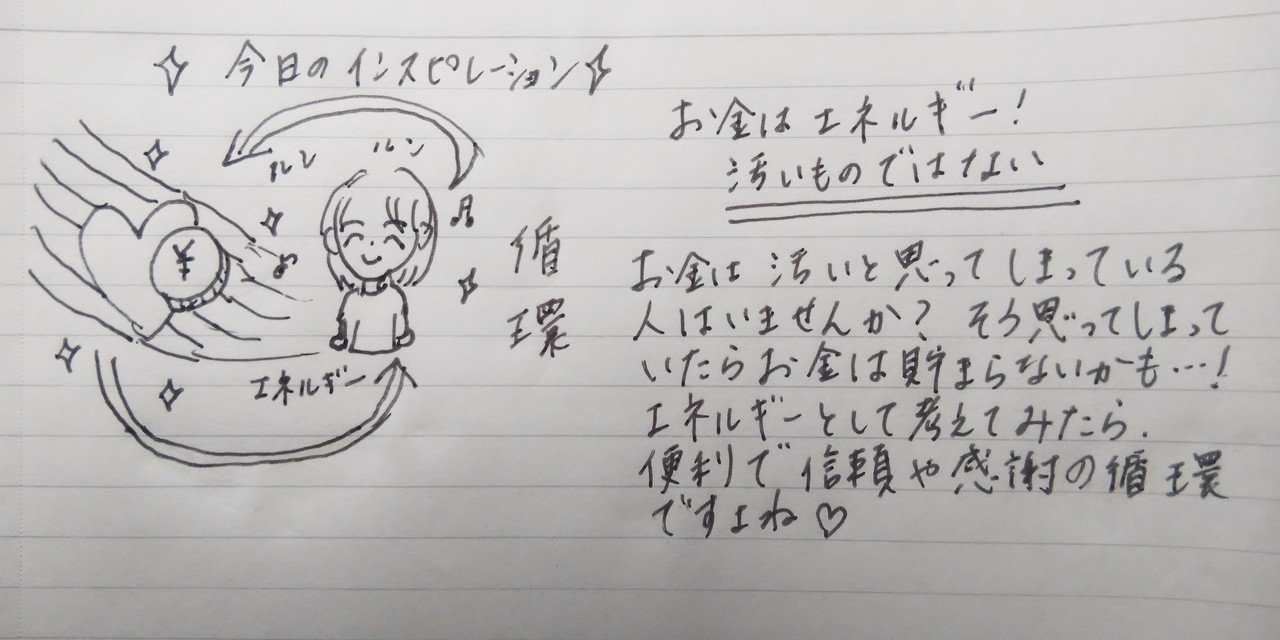 今日のインスピレーション
ルン ルン
¥
エネルギー
循
環
お金はエネルギー!
汚いものではない
お金は汚いと思ってしまっている
人はいませんか? そう思ってしまって
いたらお金は貯まらないかも…!
エネルギーとして考えてみたら、
便利で信頼や感謝の循環
ですよね♡